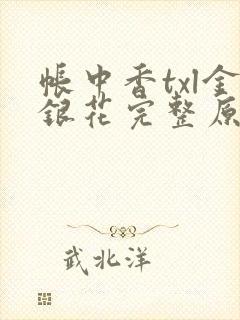 帐中香txl金
銀花完整原
武北洋